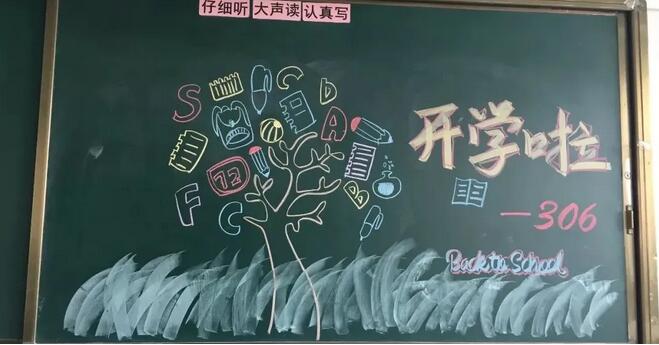 仔细听 大声读 认真写
S C D
A
F C
12
开学啦
—306
Back to School